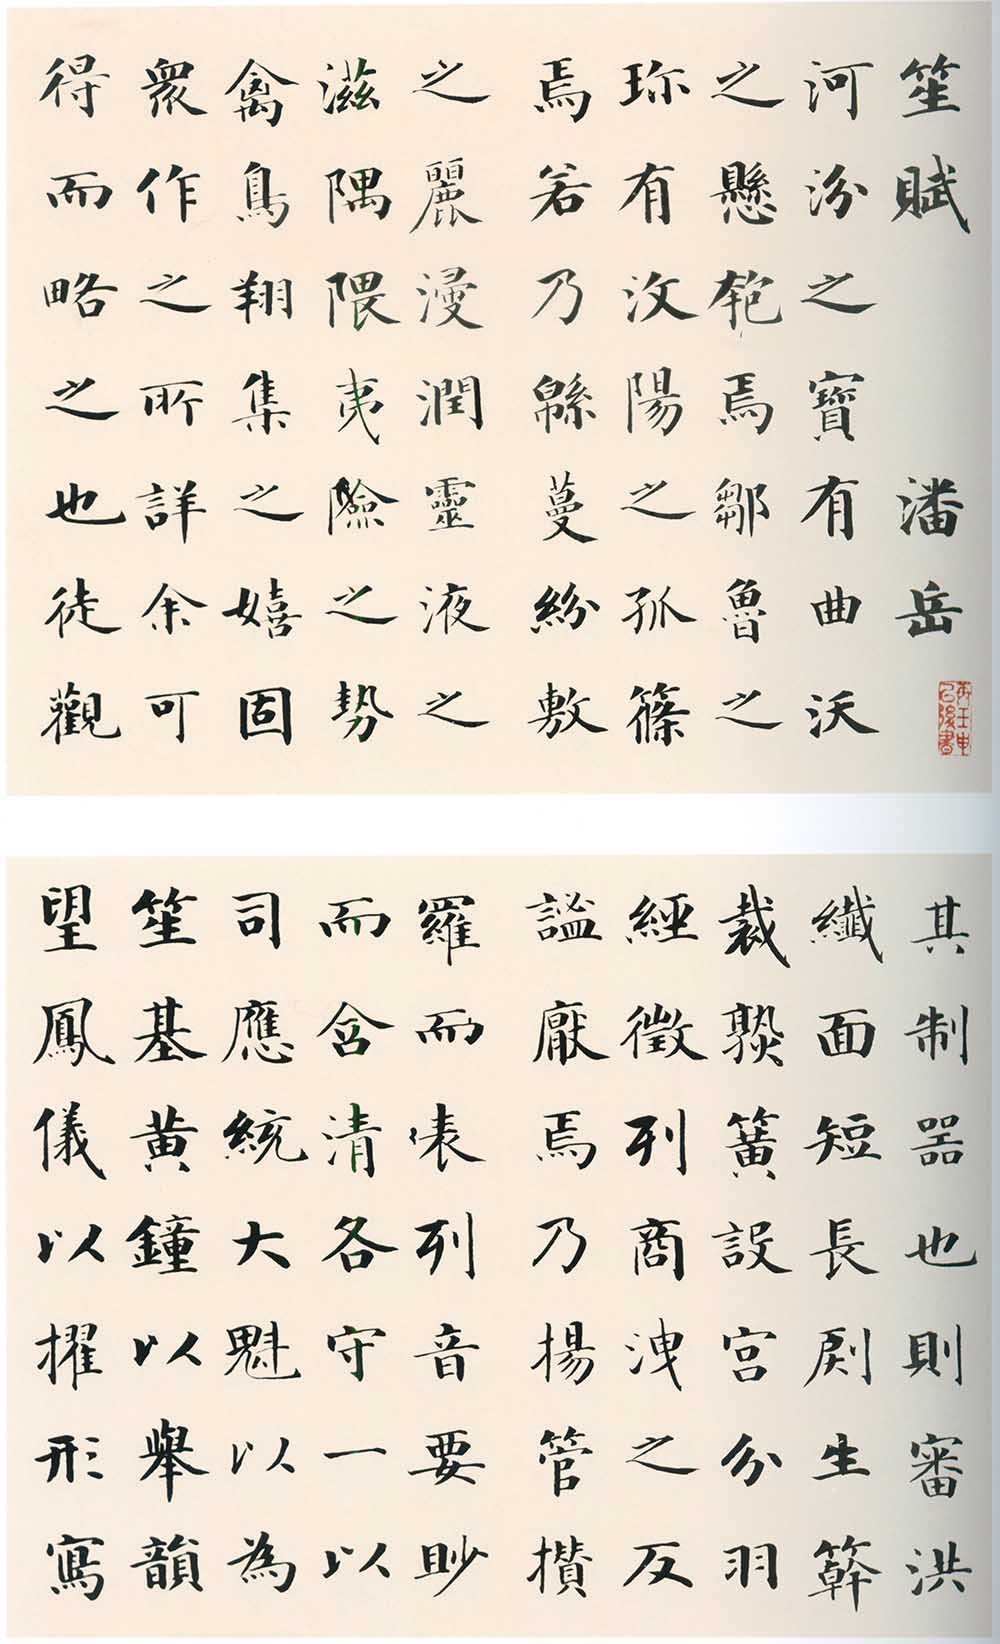 笙賦 潘岳
河汾之寶有曲沃
之懸匏焉鄒魯之
珎有汶陽之孤篠
焉若乃緜蔓紛敷
之麗漫潤靈液之
滋隅隈夷險之勢
禽鳥翔集之嬉固
衆作之所詳余可
得而略之也徒觀
其制器也則審洪
纖面短長剧生簳
裁熟簧設宮分羽
經徵列商洩之反
謐厭焉乃揚管攅
羅而表列音要眇
而含清各守一以
司應統大魁以為
笙基黄鐘以舉韻
望鳳儀以擢形寫